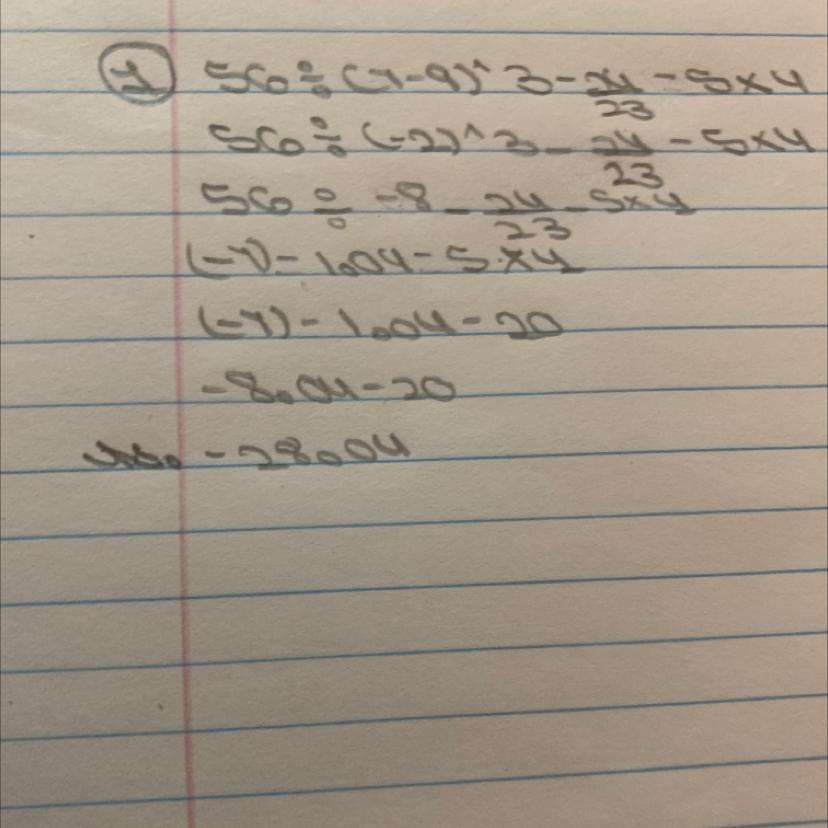 1 56 ÷ (7-9)^3 - 24/23 - 5×4
56 ÷ (-2)^3 - 24/23 - 5×4
56 ÷ -8 - 24/23 - 5×4
(-7) - 1.04 - 5×4
(-7) - 1.04 - 20
-8.04 - 20
-28.04